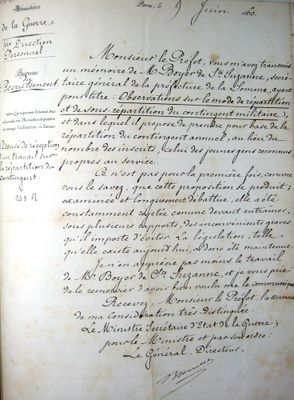 Ministère
de la Guerre.
Direction
Personnel
Bureau
Recrutement
Paris, le 9 Juin 1860.
Monsieur le Préfet, vous m'avez transmis
un mémoire de M. Boyer de Ste Suzanne, secré-
taire général de la préfecture de la Somme, ayant
pour titre: Observations sur le mode de répartition
et de sous-répartition du contingent militaire,
et dans lequel il propose de prendre pour base de la
répartition du contingent annuel, au lieu du
nombre des inscrits, celui des jeunes gens reconnus
propres au service.
Accusé de réception
d'un travail sur
la répartition du
contingent.
Ce n'est pas pour la première fois, comme
vous le savez, que cette proposition se produit;
examinée et longuement débattue, elle a été
constamment rejetée comme devant entraîner,
sous plusieurs rapports, des inconvénients graves
qu'il importe d'éviter. La législation, telle
qu'elle existe aujourd'hui, a donc été maintenue.
Je n'en apprécie pas moins le travail
de Mr. Boyer de Ste Suzanne, et je vous prie
de le remercier d'avoir bien voulu me le communiquer.
Recevez, Monsieur le Préfet, l'assurance
de ma considération très distinguée.
Le Ministre Secrétaire d'Etat de la Guerre;
pour le Ministre et par son ordre:
Le Général Directeur,